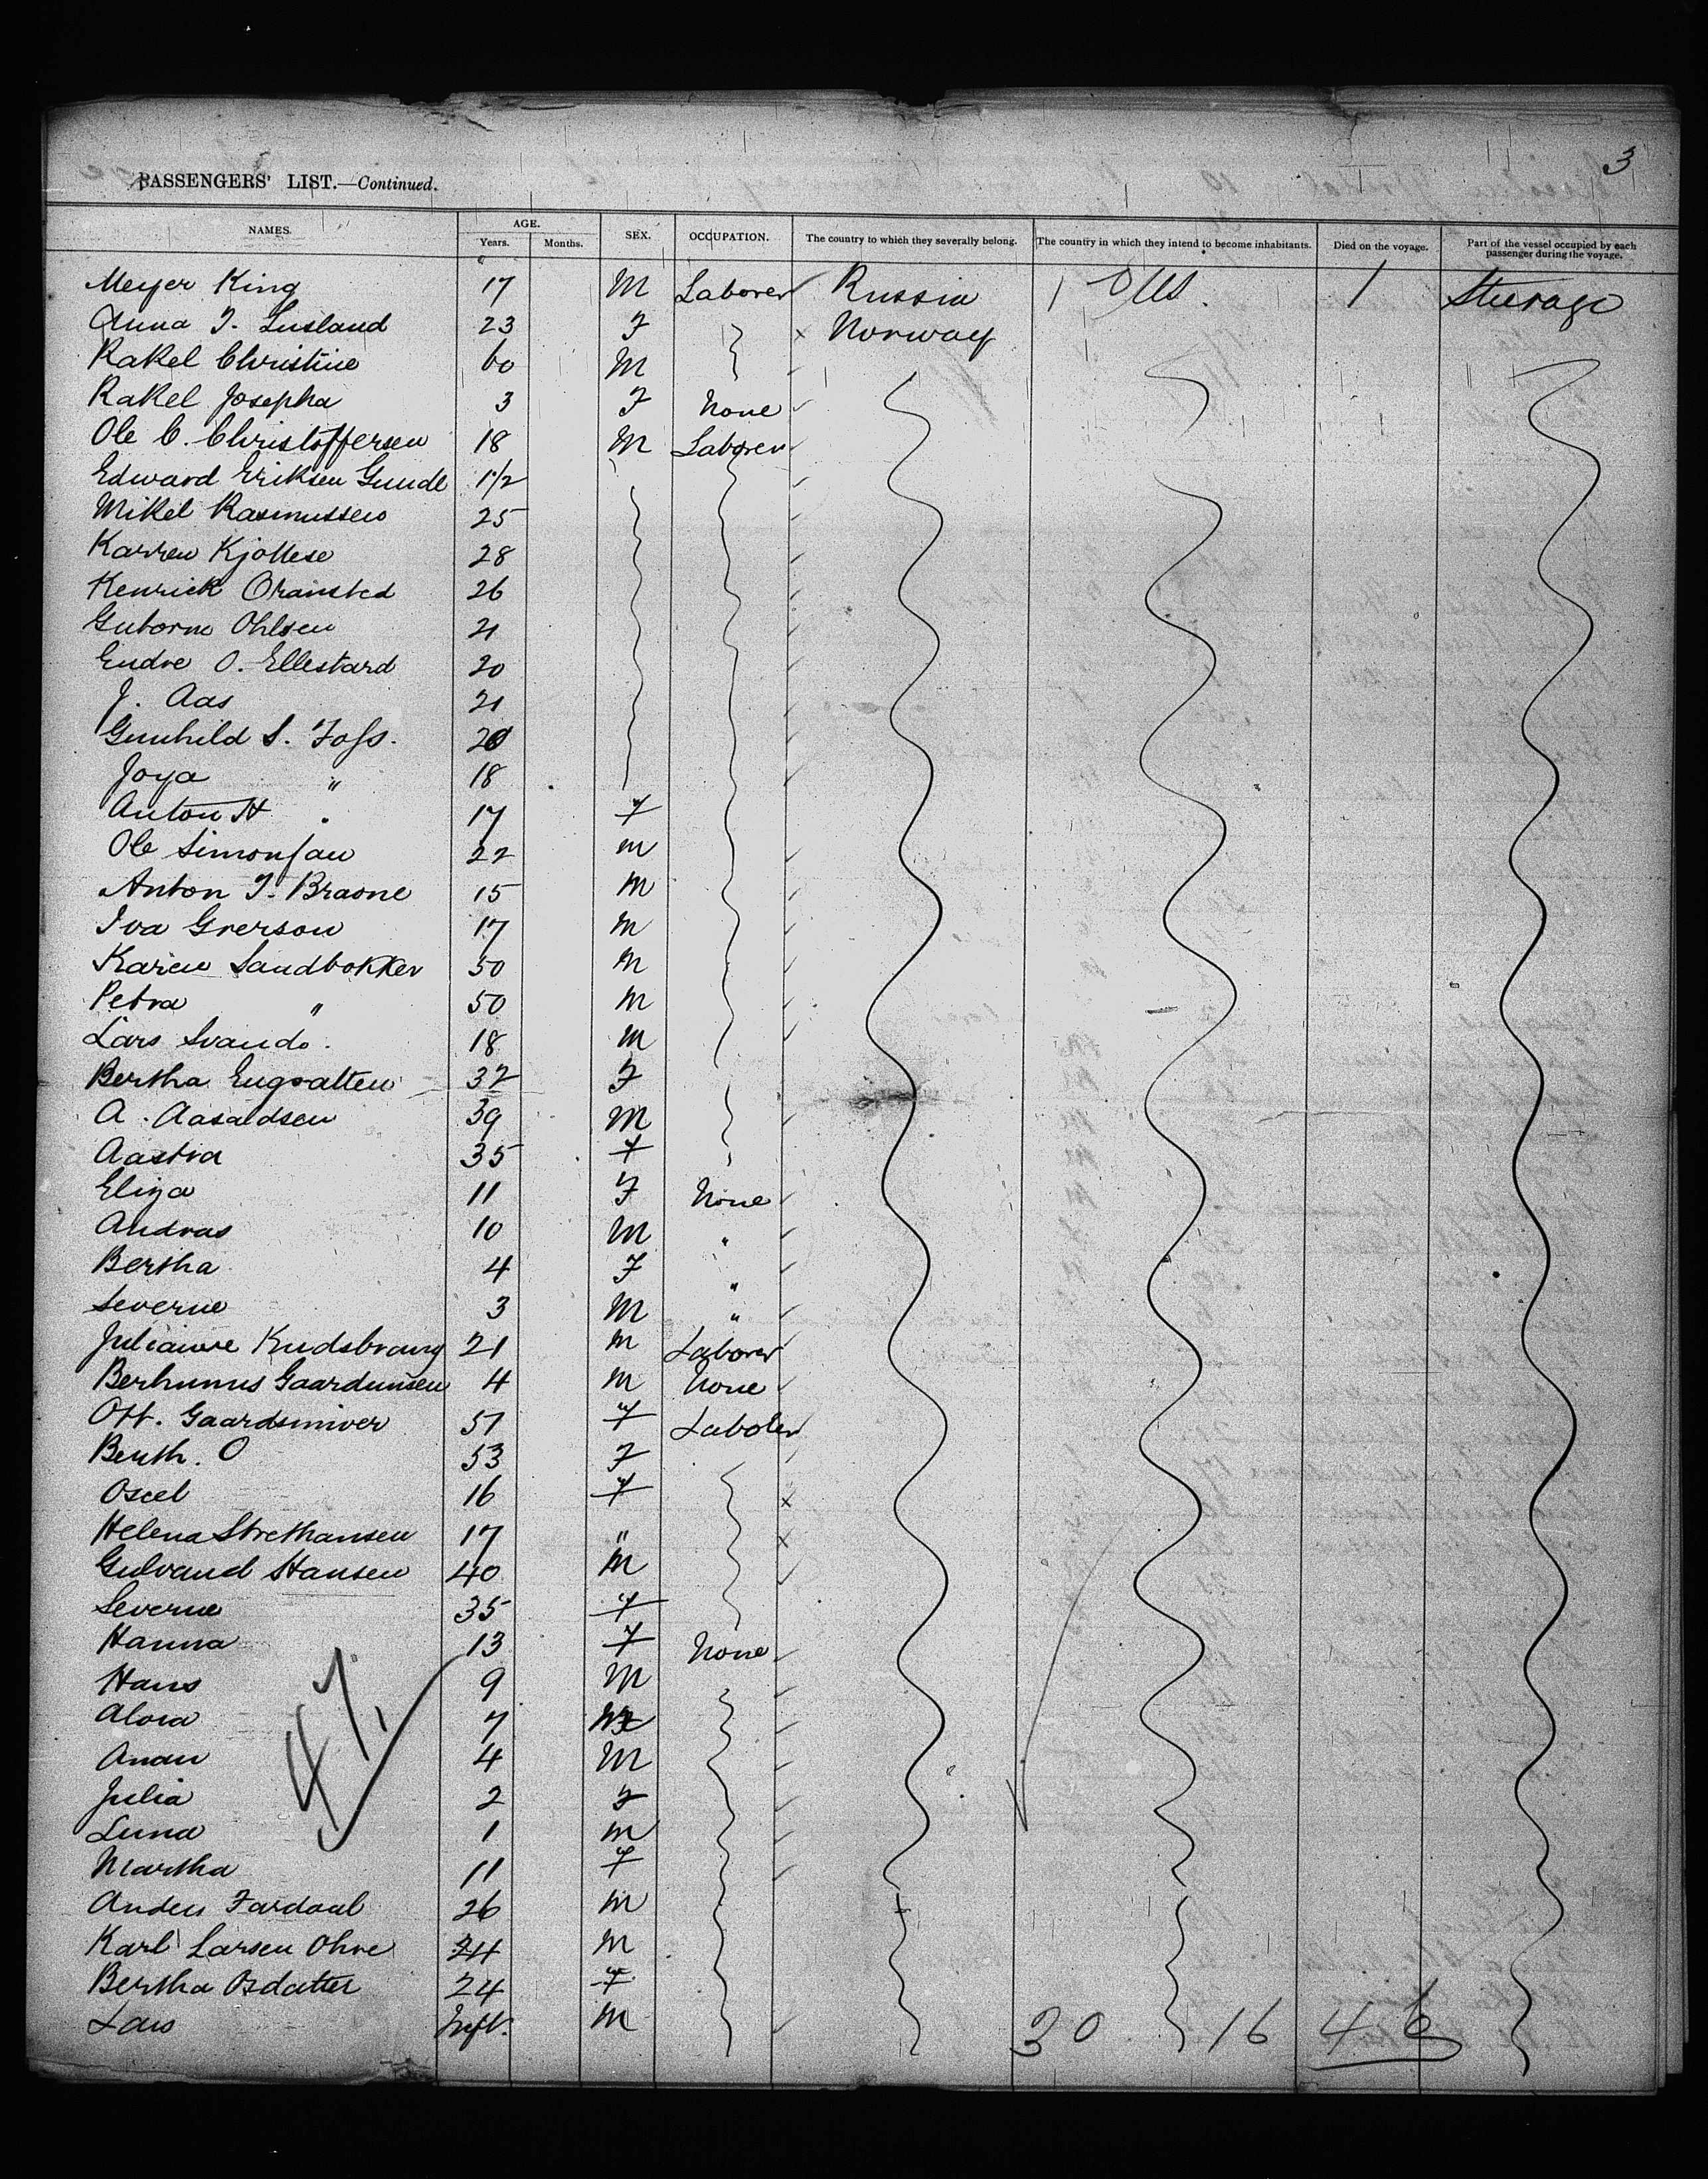 3
PASSENGERS' LIST.—Continued.
NAMES. AGE. SEX. OCCUPATION. The country to which they severally belong. The country in which they intend to become inhabitants. Died on the voyage. Part of the vessel occupied by each passenger during the voyage.
Years. Months.
Meyer King 17 M Laborer Russia 1 US. 1 Steerage
Anna T. Lusland 23 F Norway
Rakel Christine 60 M
Rakel Josepha 3 F None
Ole C. Christoffersen 18 M Laborer
Edward Eriksen Gunde 1 1/2
Mikel Rasmussen 25
Karren Kjollese 28
Kenrick Oramsted 26
Guborm Ohlsen 21
Endre O. Ellestard 20
J. Aas 21
Gunhild S. Foss. 20
Joya " 18
Anton H 17 F
Ole Simonsan 22 M
Anton T. Braone 15 M
Iva Grerson 17 M
Karien Sandbokker 50 M
Petra " 50 M
Lars Svando. 18 M
Bertha Engsatten 32 F
A. Aasaldsen 39 M
Aastra 35 F
Eliza 11 F None
Andras 10 M "
Bertha 4 F "
Severne 3 M "
Kudsbraung 21 M Laborer
Berhumus Gaardumsen 4 M None
Ott. Gaardsmiver 57 F Laborer
Benth. O 53 F
Oscel 16 F
Helena Strethansen 17 "
Gulvand Hansen 40 M
Severne 35 F
Hanna 13 F None
Hans 9 M
Alora 7
Anan 4 M
Julia 2 F
Luna 1 M
Martha 11 F
47
Anders Fardaal 26 M
Karl Larsen Ohre 24 M
Bertha Osdatter 24 F
Lars Inft. M
30 16 46